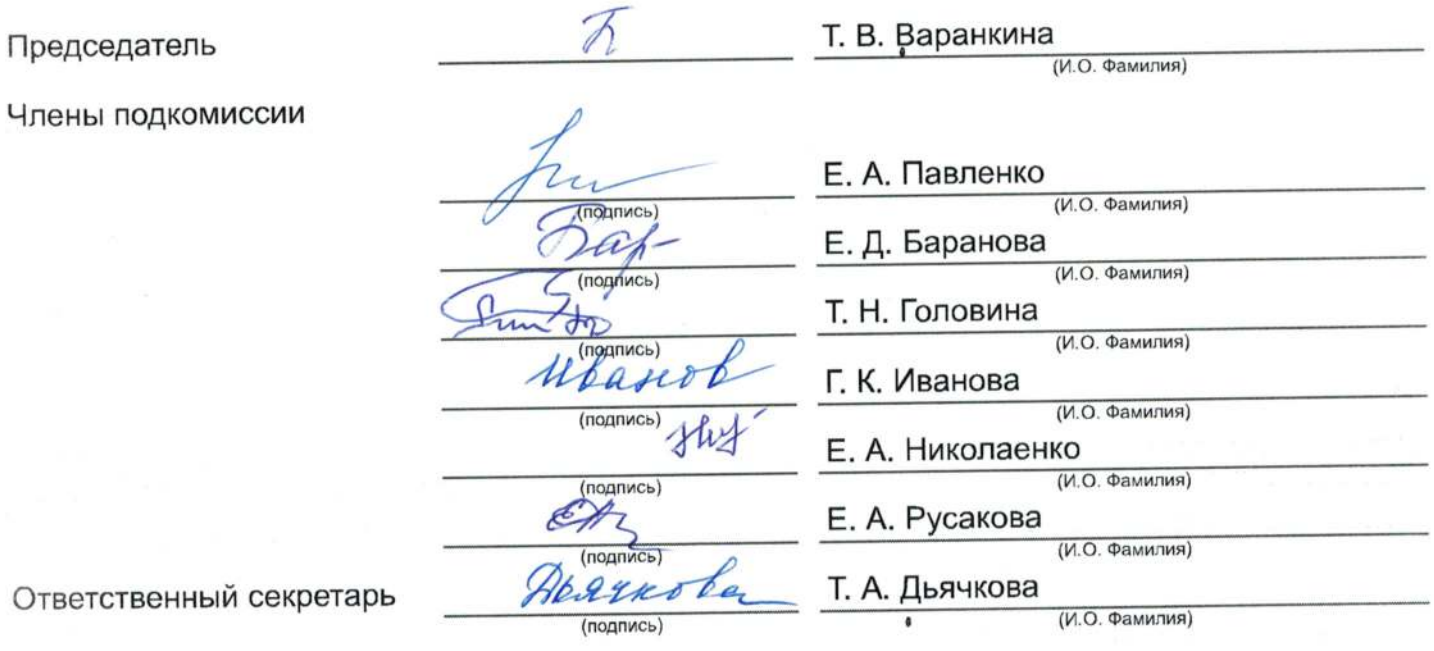 Председатель Т. В. Варанкина
(И.О. Фамилия)
Члены подкомиссии
Е. А. Павленко
(подпись) (И.О. Фамилия)
Бар- Е. Д. Баранова
(подпись) (И.О. Фамилия)
Т. Н. Головина
(подпись) (И.О. Фамилия)
Иванов Г. К. Иванова
(подпись) (И.О. Фамилия)
Е. А. Николаенко
(подпись) (И.О. Фамилия)
Е. А. Русакова
(подпись) (И.О. Фамилия)
Ответственный секретарь Дьячкова Т. А. Дьячкова
(подпись) (И.О. Фамилия)